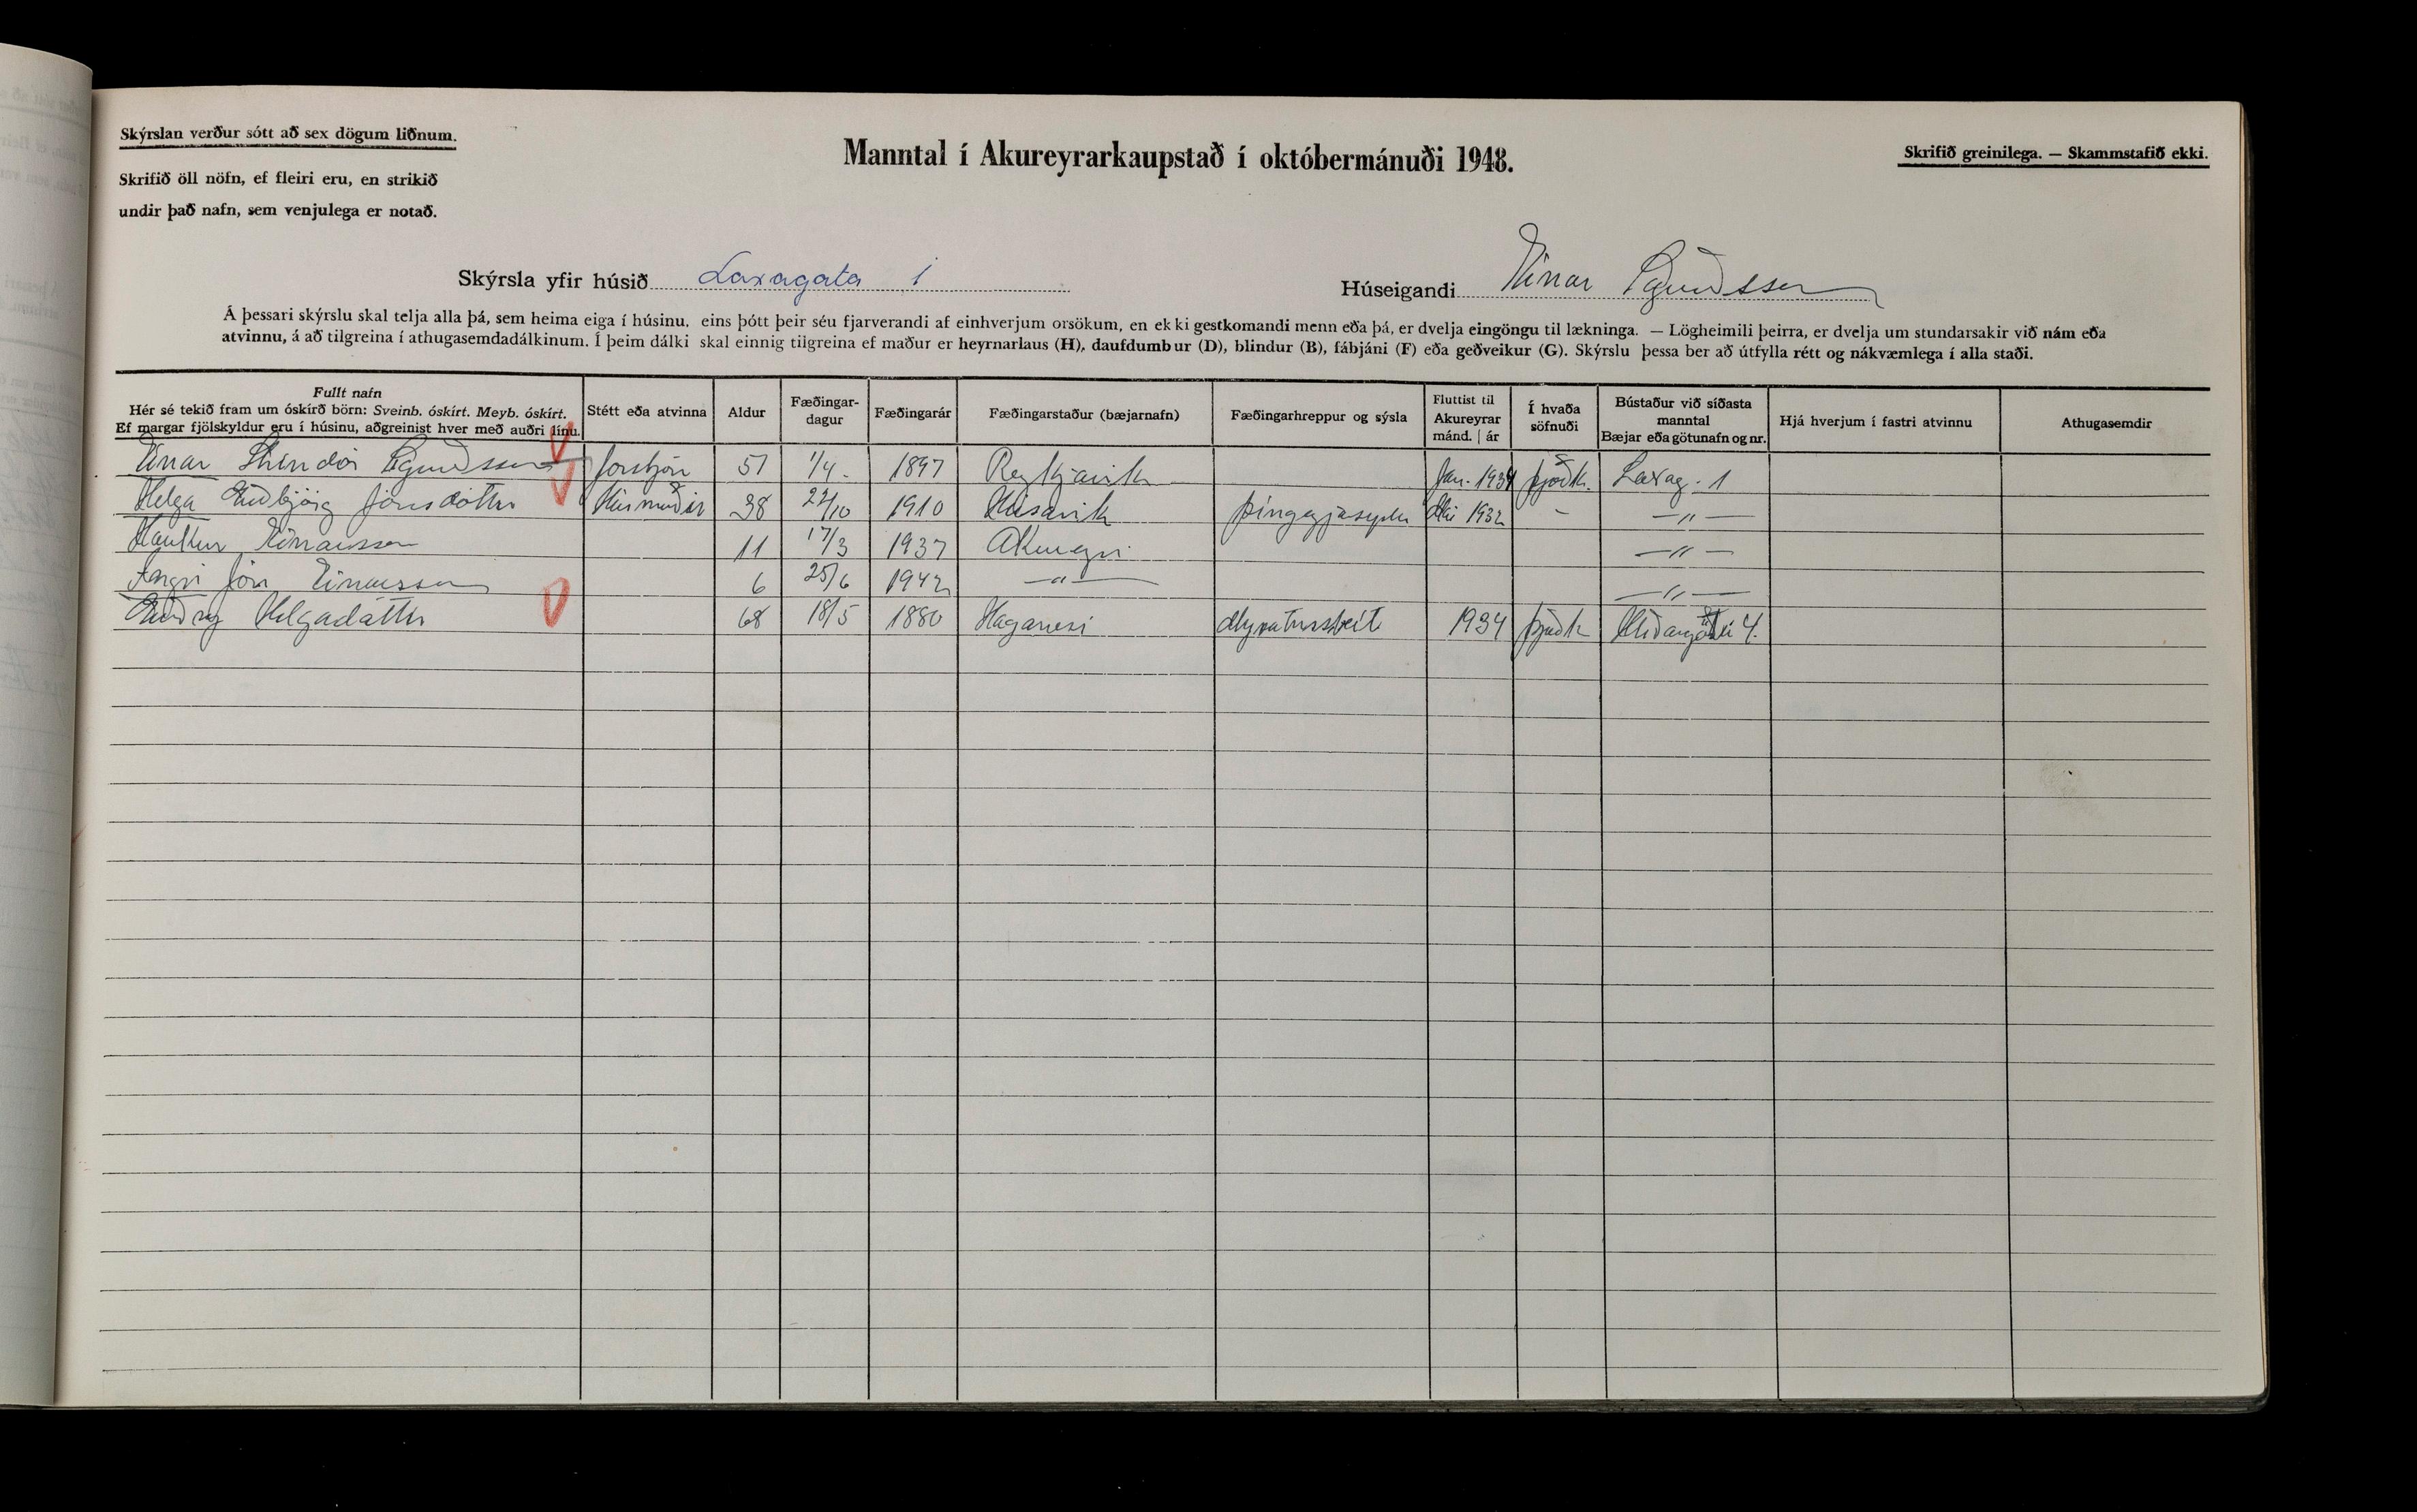 Skýrslan verður sótt að sex dögum liðnum.
Skrifið öll nöfn, ef fleiri eru, en strikið
undir það nafn, sem venjulega er notað.
Manntal í Akureyrarkaupstað í októbermánuði 1948.
Skrifið greinilega. — Skammstafið ekki.
Skýrsla yfir húsið Laxagata 1
Húseigandi Einar
Á þessari skýrslu skal telja alla þá, sem heima eiga í húsinu, eins þótt þeir séu fjarverandi af einhverjum orsökum, en ekki gestkomandi menn eða þá, er dvelja eingöngu til lækninga. — Lögheimili þeirra, er dvelja um stundarsakir við nám eða
atvinnu, á að tilgreina í athugasemdadálkinum. Í þeim dálki skal einnig tilgreina ef maður er heyrnarlaus (H), daufdumbur (D), blindur (B), fábjáni (F) eða geðveikur (G). Skýrslu þessa ber að útfylla rétt og nákvæmlega í alla staði.
Fullt nafn
Hér sé tekið fram um óskírð börn: Sveinb. óskírt. Meyb. óskírt.
Ef margar fjölskyldur eru í húsinu, aðgreinist hver með auðri línu.
Stétt eða atvinna
Aldur
Fæðingar-
dagur
Fæðingarár
Fæðingarstaður (bæjarnafn)
Fæðingarhreppur og sýsla
Fluttist til
Akureyrar
mánd. | ár
Í hvaða
söfnuði
Bústaður við síðasta
manntal
Bæjar eða götunafn og nr.
Hjá hverjum í fastri atvinnu
Athugasemdir
Einar 51 1/4 1897 Reykjavík Jan. 1934 þjóðk. Laxag. 1
Helga Guðbjörg Jónsdóttir Húsmóðir 38 1910 Húsavík 1932 - —〃—
Haukur Einarsson 11 17/3 1937 Akureyri —〃—
Jón Einarsson 6 25/6 1942 —〃— —〃—
Guðný Helgadóttir 68 18/5 1880 Haganesi Mývatnssveit 1934 þjóðk 4.